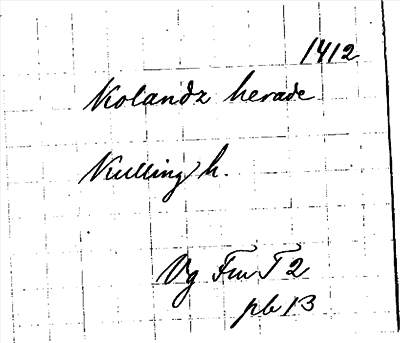 1412
Kolandz herade
Kulling h.
Vg Fm T 2
pb 13